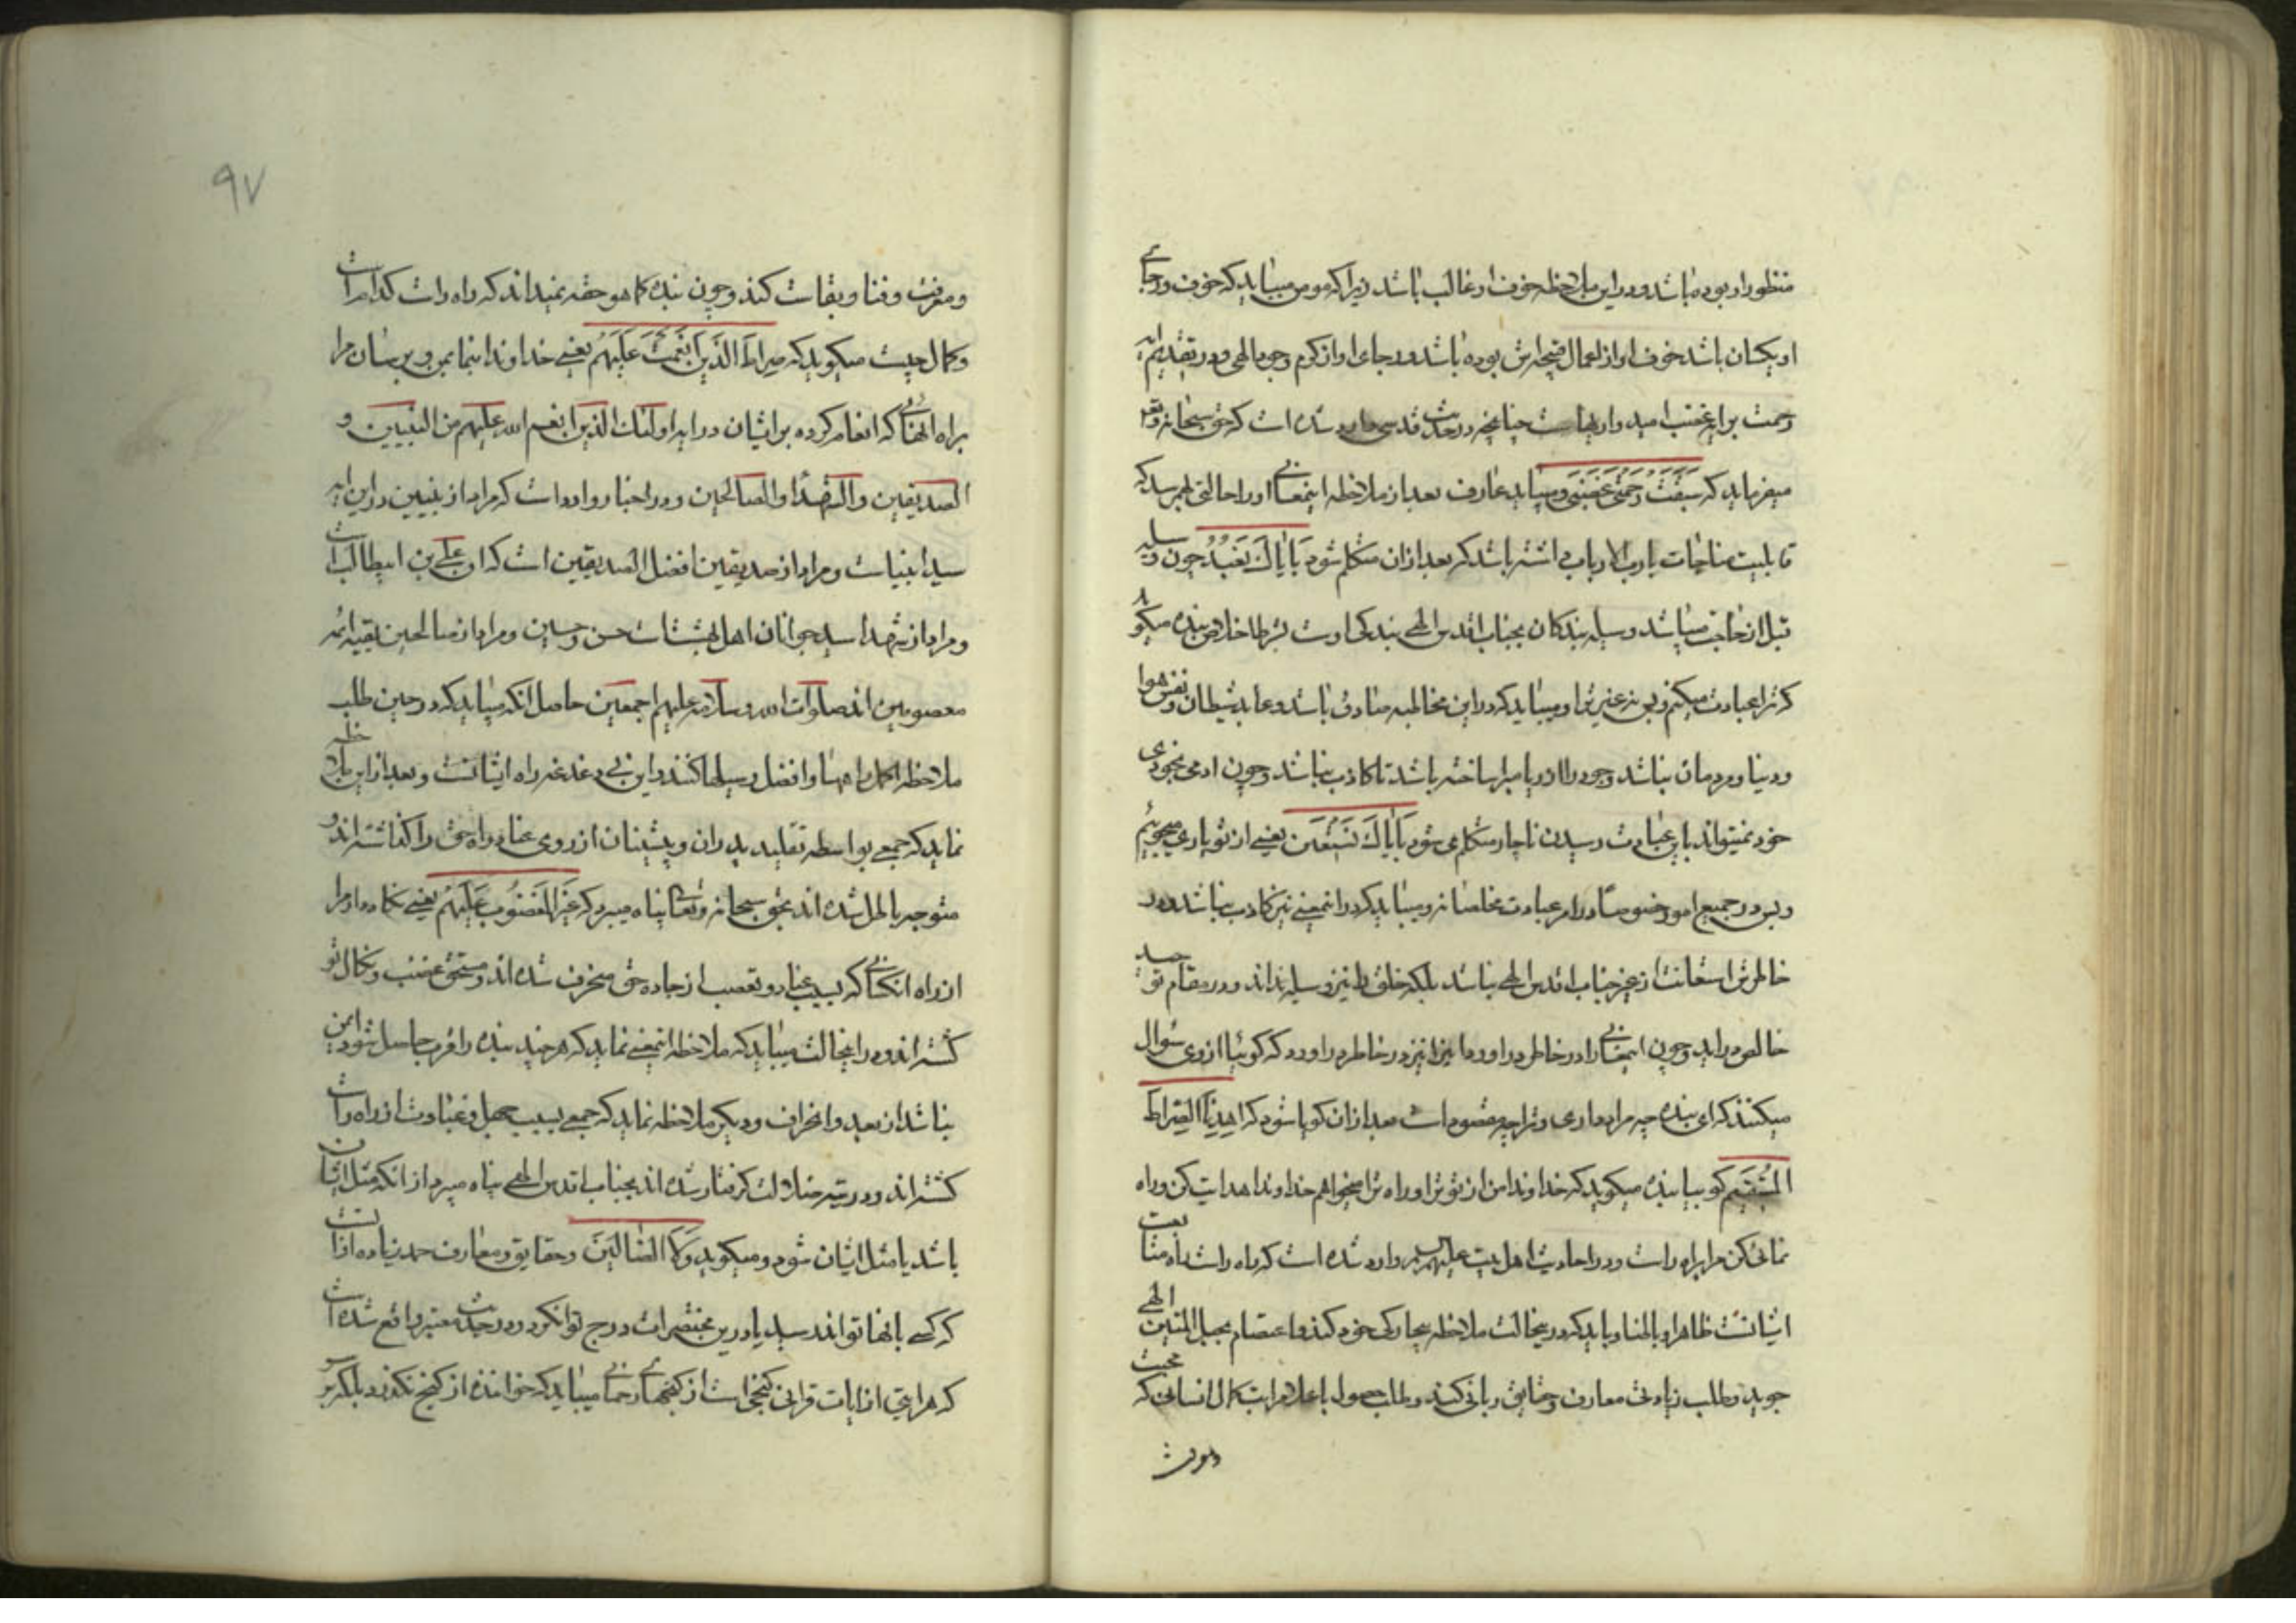 منظور او بوده باشد و در این ملاحظه خوف او غالب باشد زیرا که مومن میباید که خوف و رجای
او یکسان باشد خوف او از اعمال قبیحه‌اش بوده باشد و رجای او از کرم وجود الهی و در تقدیم آیه
رحمت بر آیه غضب امیدواریهاست چنانچه در حدیث قدسی وارد شده است که حق سبحانه و تع
میفرماید که سَبَقَتْ رَحْمَتی غَضَبی و میباید عارف بعد از ملاحظه اینمعانی او را حالتی بهم رسد که
قابلیت مناجات با رب الارباب داشته باشد که بعد از ان متکلم شود بایّاکَ نَعْبُدُ چون وسیله
قبل از حاجت میباشد وسیله بندکان بجناب اقدس الهی بندکی اوست بشرط اخلاص بنده میکوید
که ترا عبادت میکنم و بس نه غیر ترا و میباید که در این مخاطبه صادق باشد و عابد شیطان و نفس و هوا
و دنیا و مردمان نباشد و خود را از ریا مبرا ساخته باشد تا کاذب نباشد و چون ادمی بخودی
خود نمیتواند باین عبادت رسیدن ناچار متکلم می شود بایّاکَ نَسْتَعین یعنی از تو یاری میجوییم
و بس در جمیع امور خصوصا در امر عبادت مخلصانه و میباید که در اینمعنی نیز کاذب نباشد و در
خاطرش استعانت از غیر جناب اقدس الهی نباشد بلکه خلق را نیز وسیله نداند و در مقام توحید
خالص در اید و چون اینمعانی را در خاطر در اورد ما این را نیز در خاطر در اورد که کوئیا از وی سوال
میکنند که ای بنده چه مراد داری و ترا چه مقصود است بعد از ان کویا شود که اِهْدِنَا الصِّراطَ
المُسْتَقیم کوییا بنده میکوید که خداوندا من از تو ترا و راه ترا میخواهم خداوندا هدایت کن و راه
نمائی کن مرا براه راست و در احادیث اهل بیت علیهم السلم وارد شده است که راه راست راه متابعت
ایشانست ظاهرا و باطنا و باید که در ینحالت ملاحظه بیچارکی خود کند و اعتصام بحبل المتین الهی
جوید و طلب زیادتی معارف و حقایق ربانی کند و طلب حصول باعلا مراتب کمال انسانی که محبت
ومعرفت
ومعرفت و فنا و بقاست کند و چون بنده کما هو حقه نمیداند که راه راست کدام است
و کمال چیست میکوید که صِراطَ الَّذینَ اَنْعَمْتَ عَلَیْهِمْ یعنی خداوندا بنمای و برسان مرا
براه انهائی که انعام کرده بر ایشان در ایه اولئک الذین انعم الله علیهم من النبیین و
الصدیقین والشهدا والصالحین و در اخبار وارد است که مراد از نبیین در این ایه
سید انبیاست و مراد از صدیقین افضل الصدیقین است که ان علی بن ابیطالب است
و مراد از شهدا سید جوانان اهل بهشت است حسن و حسین و مراد از صالحین بقیه ائمه
معصومین اند صلوات الله و سلامه علیهم اجمعین حاصل انکه میباید که در حین طلب
ملاحظه اکمل راهها و افضل وسیلها کنند و این بی دغدغه راه ایشانست و بعد از این ملاحظه
نماید که جمعی بواسطه تقلید پدران و پیشینان از روی عناد راه حق را کذاشته اند و
متوجه باطل شده اند بحق سبحانه و تعالی پناه میبرد که غَیْرِ الْمَغْضُوبِ عَلَیْهِمْ یعنی نکاه دار مرا
از راه انکسانی که بسبب عناد و تعصب از جاده حق منحرف شده اند و مستحق غضب و نکال تو
کشته اند و در اینحالت میباید که ملاحظه اینمعنی نماید که هر چند بنده را قرب حاصل شود ایمن
نباشد از بعد و انحراف و دیکر ملاحظه نماید که جمعی بسبب جهل و غباوت از راه راست
کشته اند و در تیه ضلالت کرفتار شده اند بجناب اقدس الهی پناه میبرد از انکه مثل ایشان
باشد یا مثل ایشان شود و میکوید وَلَا الضّالّینَ و حقایق و معارف حمد زیاده از انست
که کسی بانها تواند رسید یا در ین مختصرات درج توان کرد و در حدیث معتبر واقع شده است
که هر ایتی از ایات قرانی کنجی است از کنجهای رحمانی میباید که خواننده از کنج نکذرد بلکه بر سر